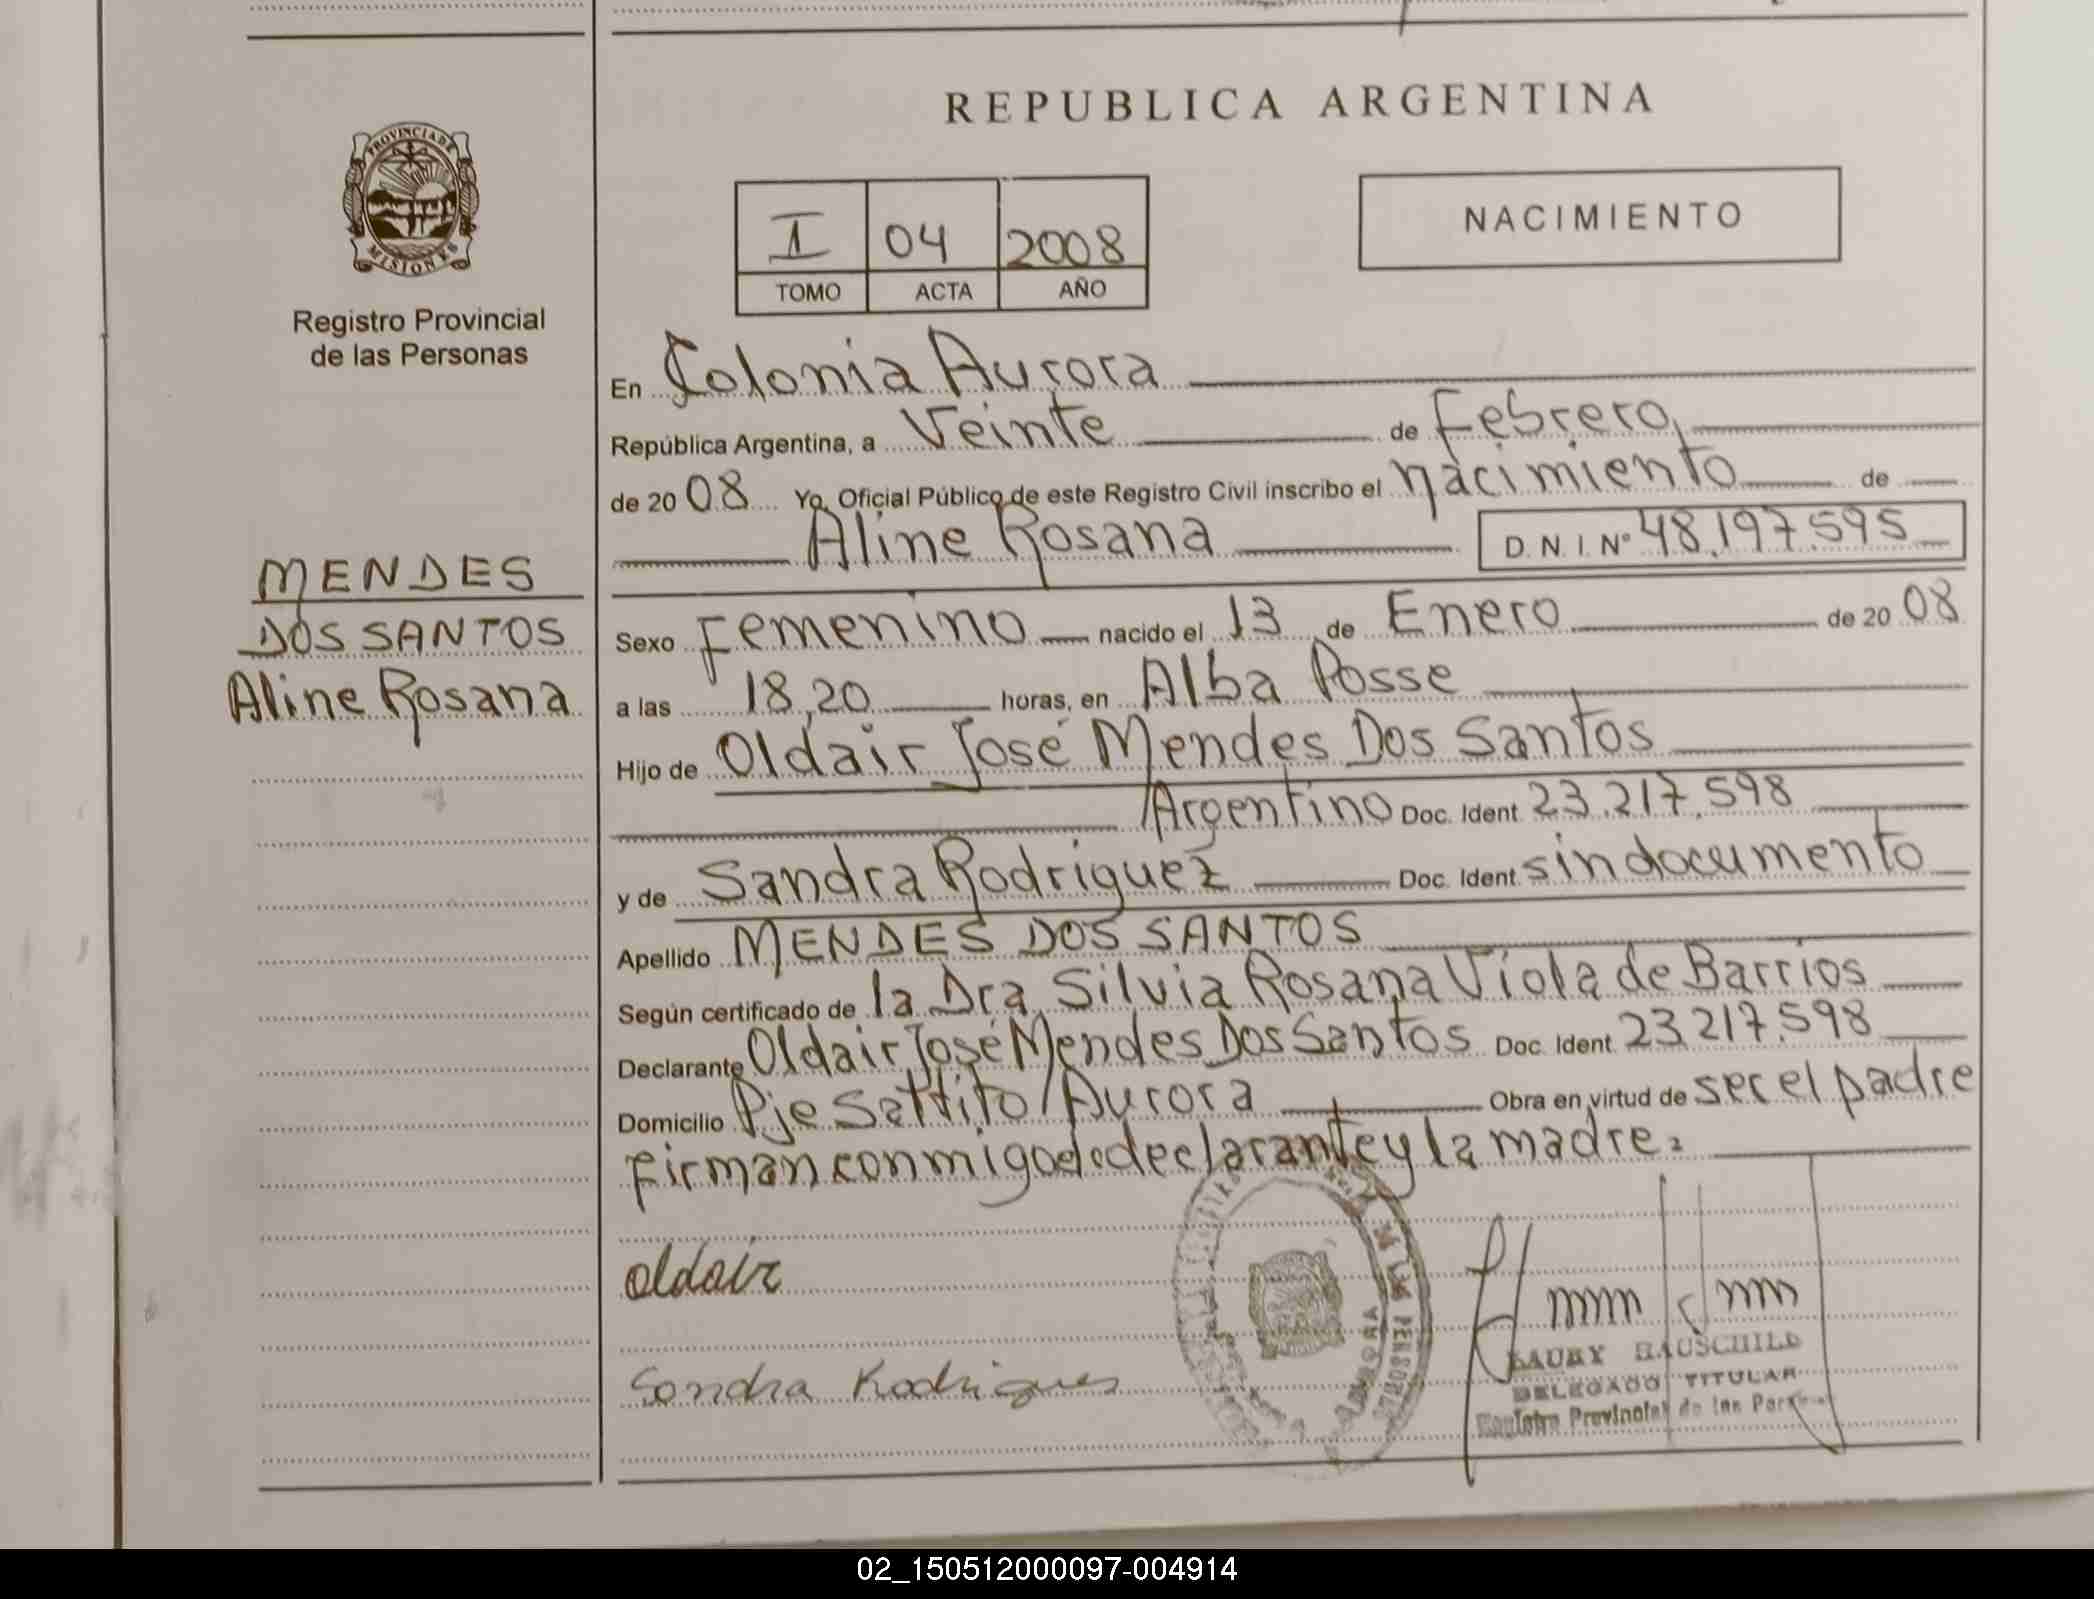 REPUBLICA ARGENTINA
PROVINCIA DE
MISIONES
Registro Provincial
de las Personas
I 04 2008
TOMO ACTA AÑO
NACIMIENTO
MENDES
DOS SANTOS
Aline Rosana
En Colonia Aurora
República Argentina, a Veinte de Febrero,
de 2008 Yo, Oficial Público de este Registro Civil inscribo el nacimiento de
Aline Rosana D.N.I. Nº 48.197.595
Sexo Femenino nacido el 13 de Enero de 2008
a las 18,20 horas, en Alba Posse
Hijo de Oldair José Mendes Dos Santos
Argentino Doc. Ident. 23.217.598
y de Sandra Rodriguez Doc. Ident. sin documento
Apellido MENDES DOS SANTOS
Según certificado de la Dra. Silvia Rosana Viola de Barrios
Declarante Oldair José Mendes Dos Santos Doc. Ident. 23.217.598
Domicilio Pje Saltito / Aurora Obra en virtud de ser el padre
firman conmigo el declarante y la madre.
oldair
Sandra Rodrigues
HAUSCHILD
DELEGADO TITULAR
Registro Provincial de las Personas
AURORA
02_150512000097-004914